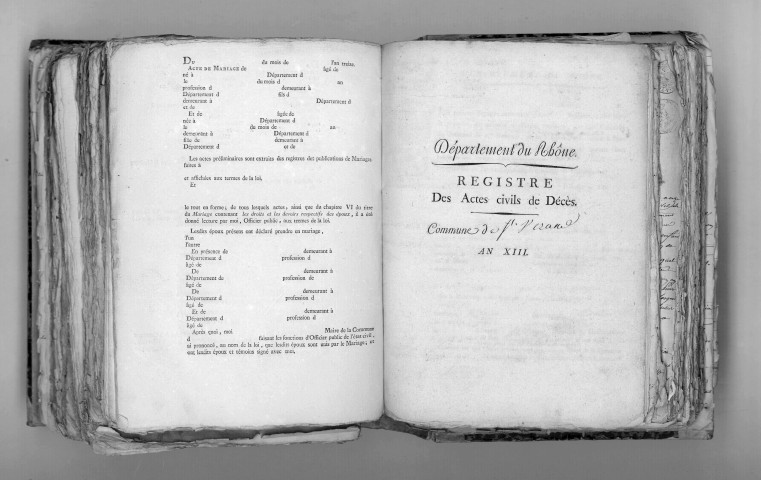 DU du mois de l'an treize.
ACTE DE MARIAGE de âgé de
né à Département d
le du mois d an
profession d demeurant à
Département d fils d
demeurant à Département d
et de
Et de âgée de
née à Département d
le du mois de an
demeurant à Département d
fille de demeurant à
Département d et de
Les actes préliminaires sont extraits des registres des publications de Mariages
faites à
et affichées aux termes de la loi.
Et
le tout en forme; de tous lesquels actes, ainsi que du chapitre VI du titre
du Mariage contenant les droits et les devoirs respectifs des époux, il a été
donné lecture par moi, Officier public, aux termes de la loi.
Lesdits époux présens ont déclaré prendre en mariage,
l'un
l'autre
En présence de demeurant à
Département d profession d
âgé de
De demeurant à
Département de profession de
âgé de
De demeurant à
Département d profession d
âgé de
Et de demeurant à
Département d profession d
âgé de
Après quoi, moi Maire de la Commune
d faisant les fonctions d'Officier public de l'état civil,
ai prononcé, au nom de la loi, que lesdits époux sont unis par le Mariage; et
ont lesdits époux et témoins signé avec moi,
Département du Rhône.
REGISTRE
Des Actes civils de Décès.
Commune de St Verand
AN XIII.